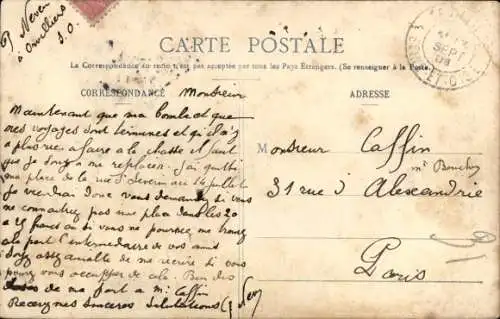 P. Never
à Orvilliers
S. O.
CARTE POSTALE
La Correspondance au recto n'est pas acceptée par tous les Pays Étrangers. (Se renseigner à la Poste.)
CORRESPONDANCE
ADRESSE
SEPT
Monsieur
Maintenant que ma et que
mes voyages sont terminés et qu'il n'y
a plus rien a faire a la chasse il faut
que je songe a me replacer. J'ai quitté
ma place de la rue St Séverin au 14 juillet
Je viendrai Donc vous demander si vous
ne connaitrez pas une place dans les 20
a 25 francs ou si vous ne pourriez me trouver
ça par l'intermédiaire de vos amis
Soyez assez aimable de me ecrire si vous
pouvez vous occupper de cela. Bien des
de ma part a M. Caffin
Recevez mes sincères Salutations P. Never
Monsieur Caffin
31 rue d'Alexandrie
Paris